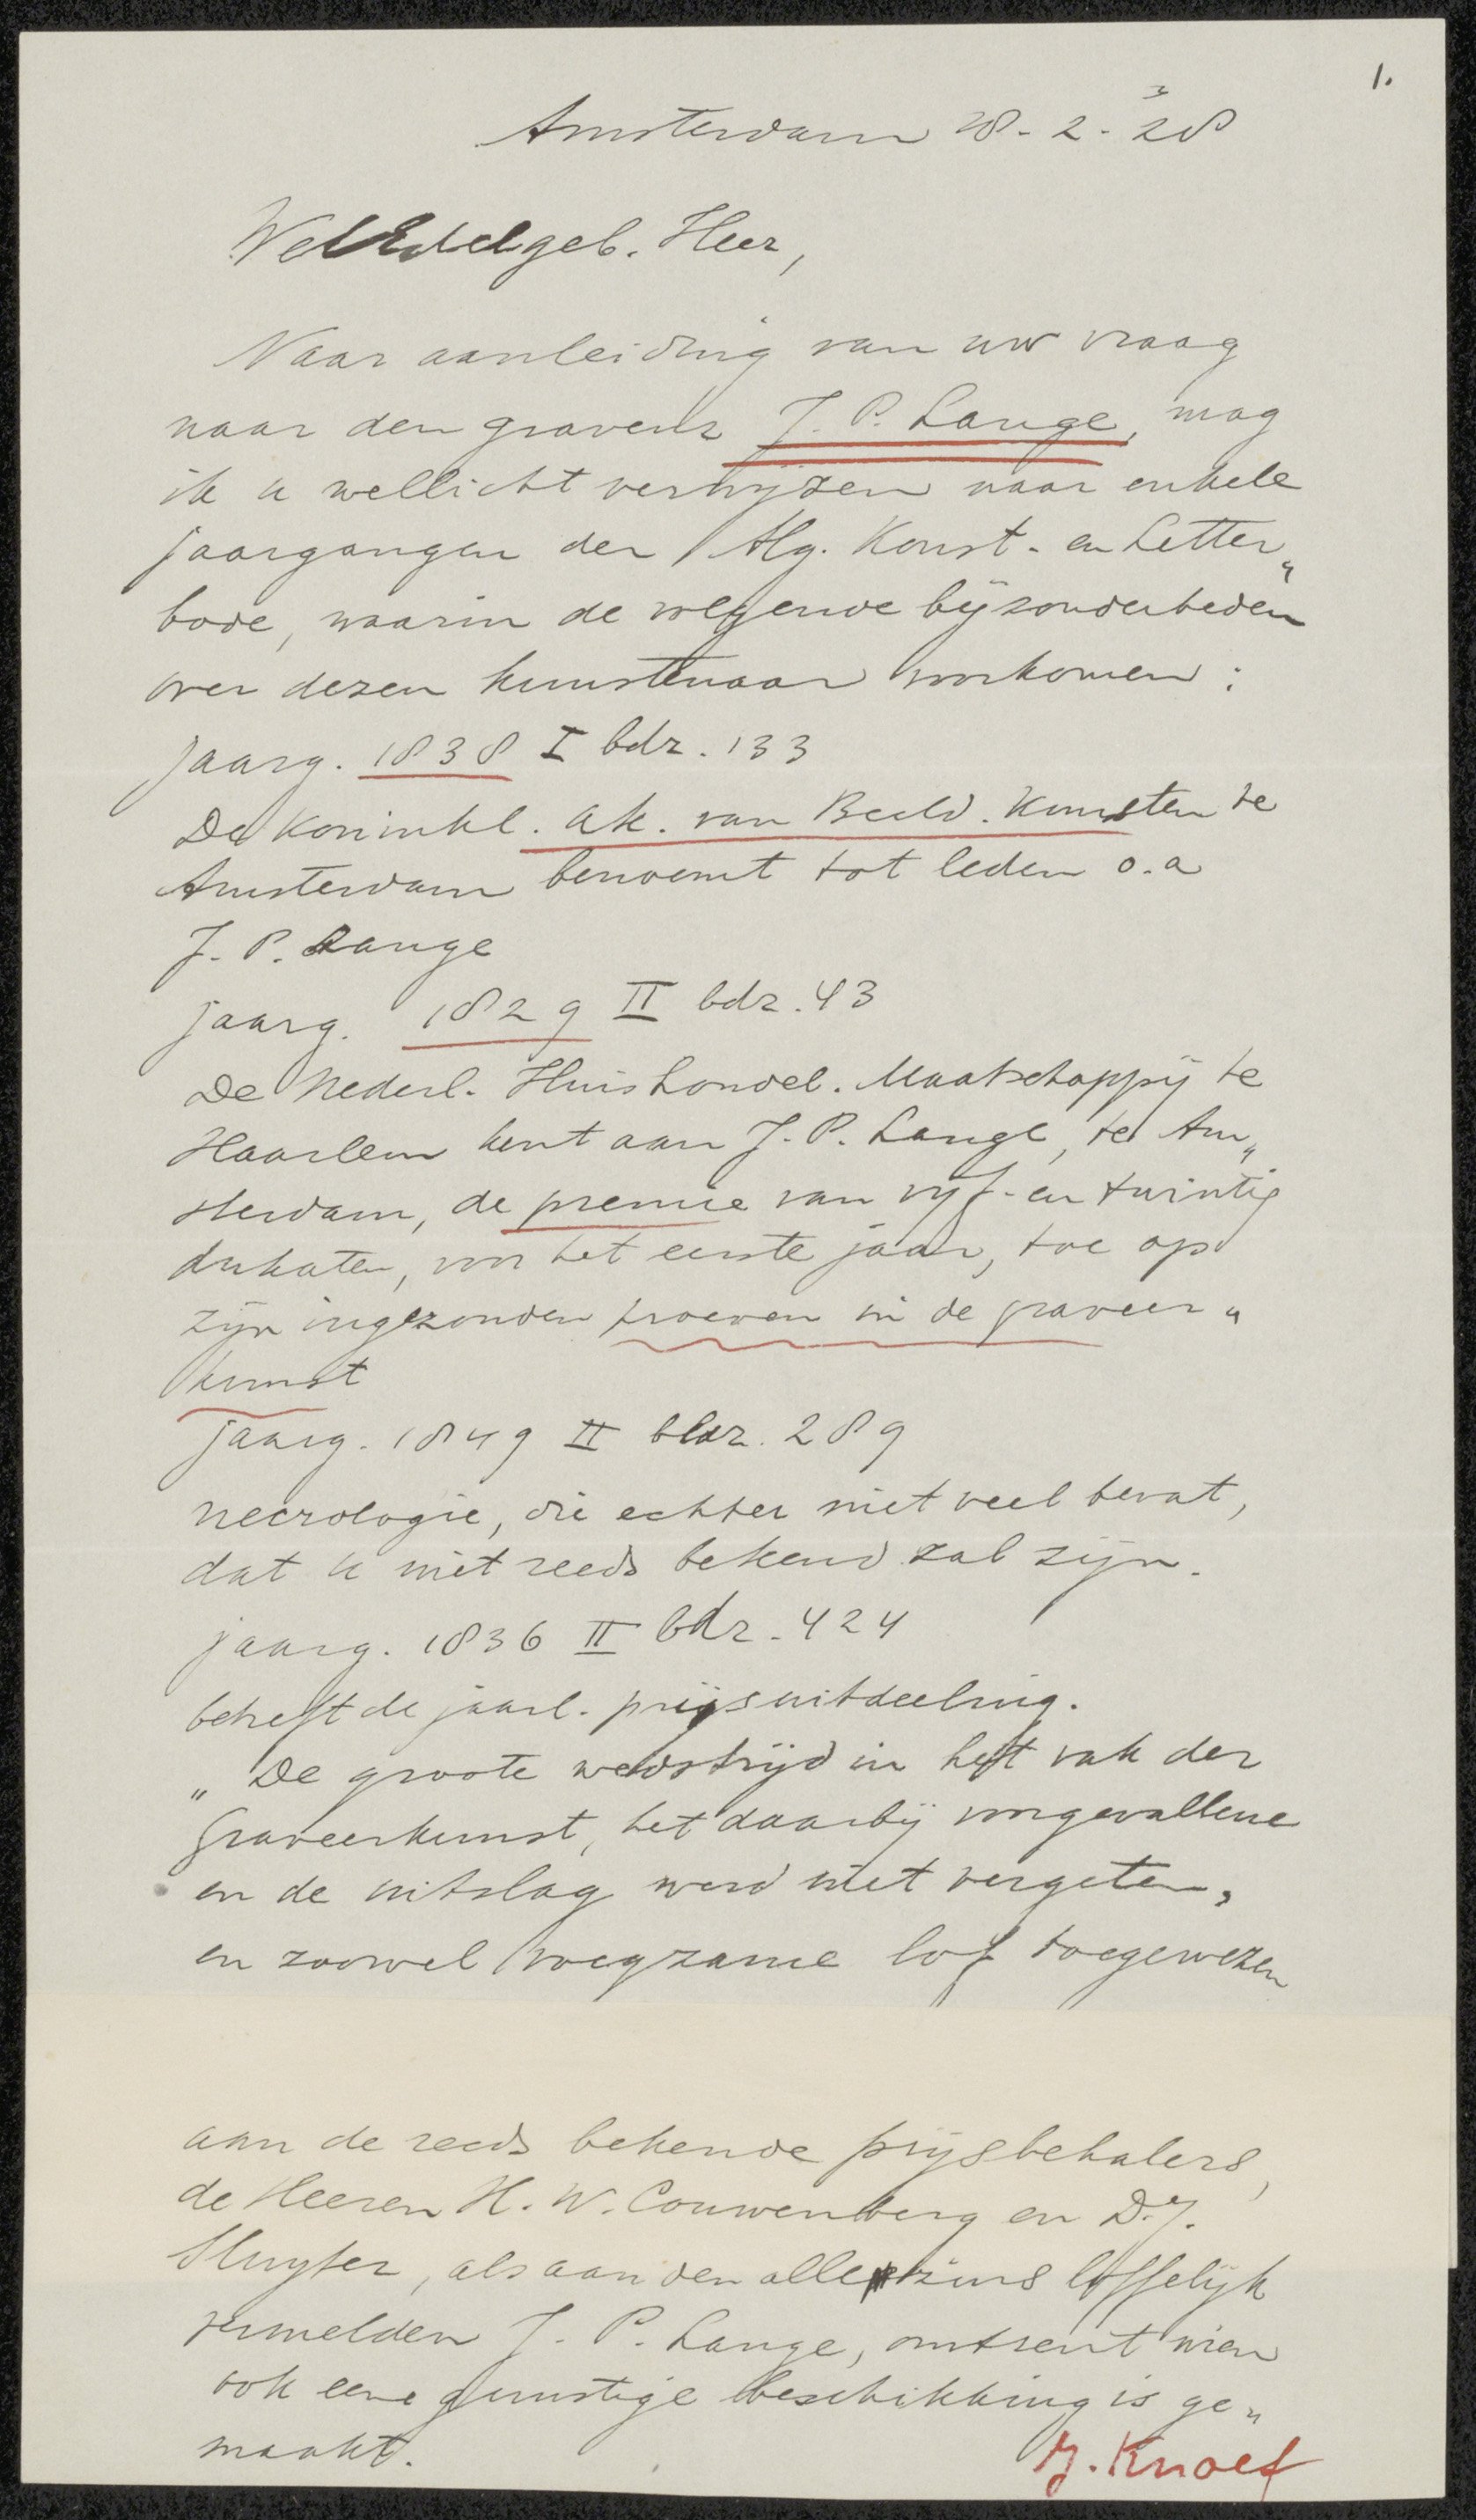 1.
Amsterdam 28-2-28
WelEdelgeb. Heer,
Naar aanleiding van uw vraag
naar den graveur J. P. Lange, mag
ik u wellicht verwijzen naar enkele
jaargangen der Alg. Konst- en Letter„
bode, waarin de volgende bijzonderheden
over dezen kunstenaar voorkomen:
jaarg. 1838 I bdz. 133
De Koninkl. Ak. van Beeld. Kunsten te
Amsterdam benoemt tot leden o.a
J. P. Lange
jaarg. 1829 II bdz. 43
De Nederl. Huishoudel. Maatschappij te
Haarlem kent aan J. P. Lange, te Am„
sterdam, de premie van vijf-en twintig
dukaten, voor het eerste jaar, toe op
zijn ingezonden proeven in de graveer„
kunst
jaarg. 1849 II bldz. 289
necrologie, die echter niet veel bevat,
dat u niet reeds bekend zal zijn.
jaarg. 1836 II bdz. 424
betreft de jaarl. prijsuitdeeling.
„De groote wedstrijd in het vak der
graveerkunst, het daarbij voorgevallene
en de uitslag werd niet vergeten,
en zoowel voegzame lof toegewezen
aan de reeds bekende prijsbehalers,
de Heeren H. W. Couwenberg en D. J.
Sluyter, als aan den allerzins loffelijk
vermelden J. P. Lange, omtrent wien
ook eene gunstige beschikking is ge„
maakt.
J. Knoef